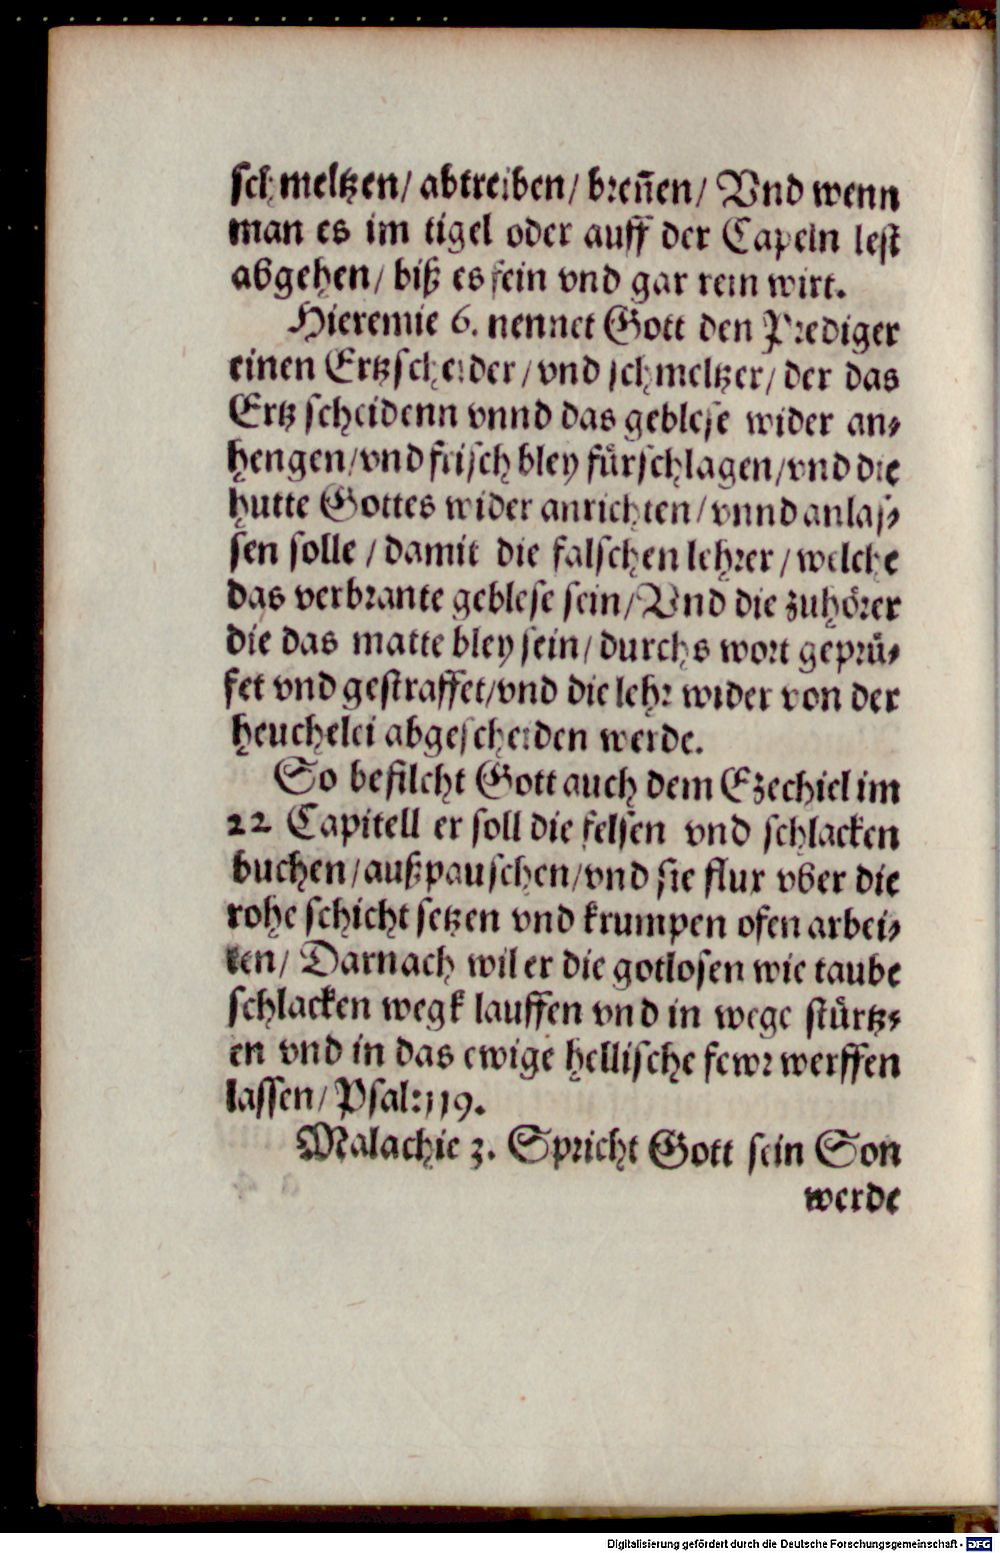 schmeltzen/ abtreiben/ breñen/ Vnd wenn
man es im tigel oder auff der Capeln lest
abgehen/ biß es fein vnd gar rein wirt.
Hieremie 6. nennet Gott den Prediger
einen Ertzscheider/ vnd schmeltzer/ der das
Ertz scheidenn vnnd das geblese wider an⸗
hengen/ vnd frisch bley fürschlagen/ vnd die
hutte Gottes wider anrichten/ vnnd anlas⸗
sen solle/ damit die falschen lehrer/ welche
das verbrante geblese sein/ Vnd die zuhörer
die das matte bley sein/ durchs wort geprü⸗
fet vnd gestraffet/ vnd die lehr wider von der
heuchelei abgescheiden werde.
So befilcht Gott auch dem Ezechiel im
22 Capitell er soll die felsen vnd schlacken
buchen/ außpauschen/ vnd sie flux vber die
rohe schicht setzen vnd krumpen ofen arbei⸗
ten/ Darnach wil er die gotlosen wie taube
schlacken wegk lauffen vnd in wege stürtz⸗
en vnd in das ewige hellische fewr werffen
lassen/ Psal: 119.
Malachie 3. Spricht Gott sein Son
werde
Digitalisierung gefördert durch die Deutsche Forschungsgemeinschaft - DFG